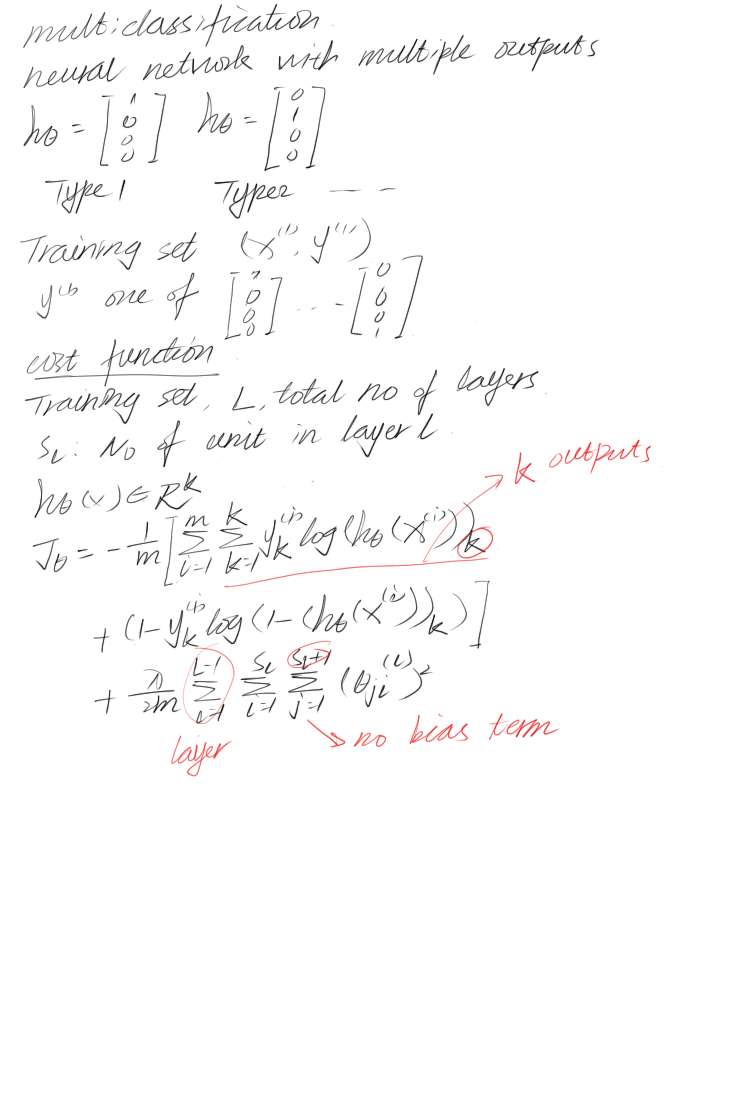 multiclassification
neural network with multiple outputs
hθ = [1 0 0 0] hθ = [0 1 0 0]
Type 1 Type2 — —
Training set (x⁽¹⁾, y⁽¹⁾)
y⁽ⁱ⁾ one of [1 0 0 0] ... [0 0 0 1]
cost function
Training set, L, total no of layers
S_l: No of unit in layer l
hθ(x) ∈ R^k
k outputs
J_θ = -1/m [∑_{i=1}^{m} ∑_{k=1}^{k} y_k^{(i)} log(hθ(x^{(i)}))_k
+ (1-y_k^{(i)} log(1-(hθ(x^{(i)}))_k)]
+ λ/2m ∑_{l=1}^{L-1} ∑_{i=1}^{S_l} ∑_{j=1}^{S_l+1} (θ_{ji}^{(l)})²
layer
no bias term